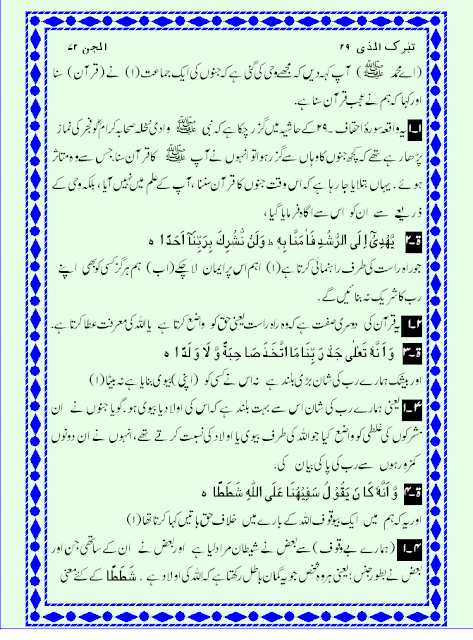 تبٰرک الذی ۲۹ الجن ۷۲
(اے محمد ﷺ) آپ کہہ دیں کہ مجھے وحی کی گئی ہے کہ جنوں کی ایک جماعت (۱) نے (قرآن) سنا
اور کہا کہ ہم نے عجب قرآن سنا ہے۔
۱۔۱ یہ واقعہ سورۂ احقاف ۔۲۹ کے حاشیہ میں گزر چکا ہے کہ نبی ﷺ وادیٔ نخلہ صحابہ کرام کو فجر کی نماز
پڑھا رہے تھے کہ کچھ جنوں کا وہاں سے گزر ہوا تو انہوں نے آپ ﷺ کا قرآن سنا، جس سے وہ متاثر
ہوئے۔ یہاں بتلایا جا رہا ہے کہ اس وقت جنوں کا قرآن سننا، آپ کے علم میں نہیں آیا، بلکہ وحی کے
ذریعے سے ان کو اس سے آگاہ فرمایا گیا،
ق۔۲ يَّهْدِىْٓ اِلَى الرُّشْدِ فَاٰمَنَّا بِهٖ ؕ وَلَنْ نُّشْرِكَ بِرَبِّنَآ اَحَدًا ہ
جو راہ راست کی طرف راہنمائی کرتا ہے (۱) ہم اس پر ایمان لا چکے (اب) ہم ہرگز کسی کو بھی اپنے
رب کا شریک نہ بنائیں گے۔
۲۔۱ یہ قرآن کی دوسری صفت ہے کہ وہ راہ راست یعنی حق کو واضع کرتا ہے یا اللہ کی معرفت عطا کرتا ہے۔
ق۔۳ وَ اَنَّهٗ تَعٰلٰى جَدُّ رَبِّنَا مَا اتَّخَذَ صَاحِبَةً وَّ لَا وَلَدًا ہ
اور بیشک ہمارے رب کی شان بڑی بلند ہے نہ اس نے کسی کو (اپنی) بیوی بنایا ہے نہ بیٹا (۱)
۳۔۱ یعنی ہمارے رب کی شان اس سے بہت بلند ہے کہ اس کی اولاد یا بیوی ہو۔ گویا جنوں نے ان
مشرکوں کی غلطی کو واضع کیا جو اللہ کی طرف بیوی یا اولاد کی نسبت کرتے تھے، انہوں نے ان دونوں
کمزوریوں سے رب کی پاکی بیان کی۔
ق۔۴ وَّ اَنَّهٗ كَانَ يَقُوْلُ سَفِيْهُنَا عَلَى اللّٰهِ شَطَطًا ہ
اور یہ کہ ہم میں ایک بیوقوف اللہ کے بارے میں خلاف حق باتیں کہا کرتا تھا (۱)
۴۔۱ (ہمارے بے وقوف) سے بعض نے شیطان مراد لیا ہے اور بعض نے ان کے ساتھی جن اور
بعض نے بطور جنس؛ یعنی ہر وہ شخص جو یہ گمان باطل رکھتا ہے کہ اللہ کی اولاد ہے۔ شَطَطًا کے کئے معنی